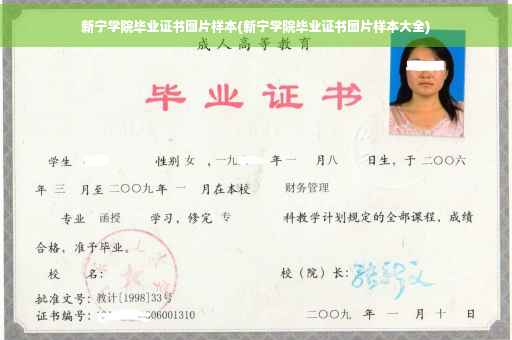 新宁学院毕业证书图片样本(新宁学院毕业证书图片样本大全)
成人高等教育
毕业证书
学生 性别 女 ，一九 年 一 月八 日生，于 二〇〇六
年 三 月至 二〇〇九 年 一 月在本校 财务管理
专业 函授 学习，修完 专 科教学计划规定的全部课程，成绩
合格，准予毕业。
校 名： 校（院）长：
批准文号：教计[1998]33号
证书编号： 06001310 二〇〇九 年 一 月 十 日